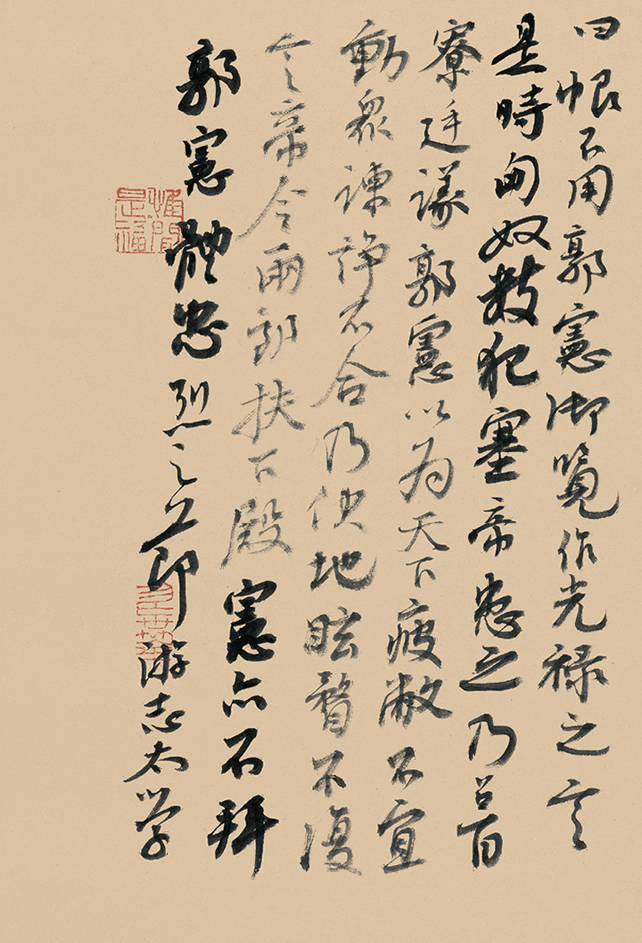 曰恨不用郭憲御覽作光祿之言
是時匈奴數犯塞帝患之乃召百
寮廷議郭憲以為天下疲敝不宜
動眾諫諍不合乃伏地眩瞀不復
言帝令兩郎扶下殿憲亦不拜
郭憲體忠烈之上節游志太學